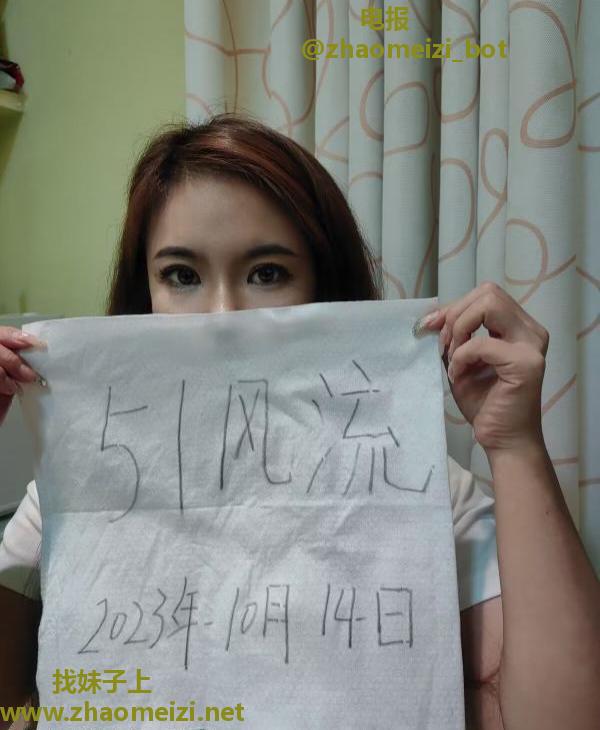 电报
@zhaomeizi_bot
51风流
2023年-10月14日
找妹子上
www.zhaomeizi.net